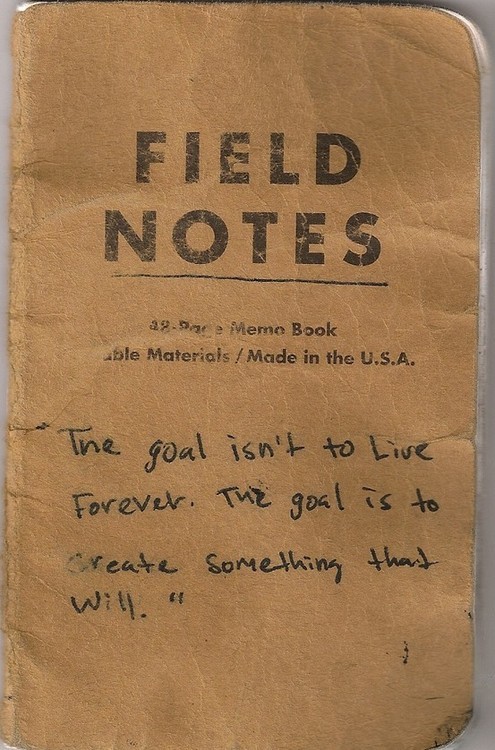 FIELD
NOTES
48-Page Memo Book
able Materials / Made in the U.S.A.
"The goal isn't to Live
Forever. The goal is to
create something that
will."